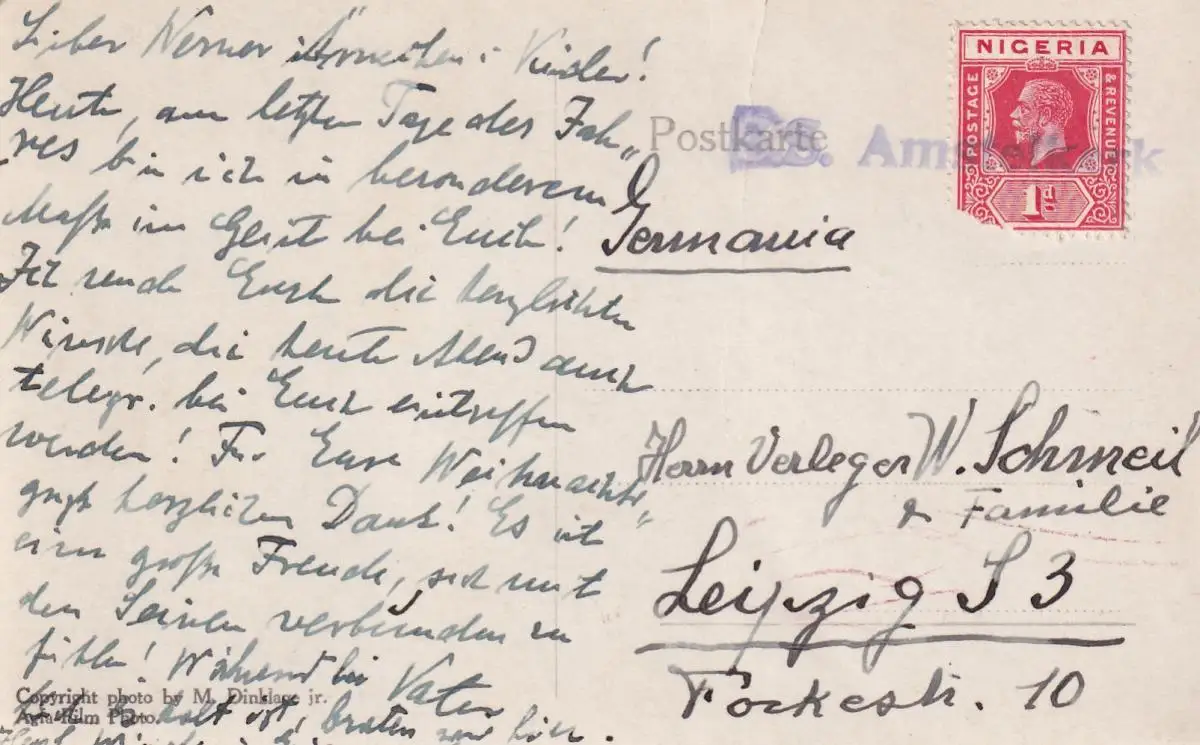 Lieber Werner Ännchen Kinder!
Heute, am letzten Tage des Jah„
res bin ich in besonderem
Maße im Geist bei Euch!
Ich sende Euch die herzlichsten
Wünsche, die heute Abend auch
telegr. bei Euch eintreffen
werden! Für Eure Weihnachts„
grüße herzlichen Dank! Es ist
eine große Freude, sich mit
den Seinen verbunden zu
fühlen! Während bei Vater
kalt ist, braten wir hier.
Copyright photo by M. Dinklage jr.
Agfa-Film Photo.
Postkarte
Ds. Amst
NIGERIA
POSTAGE
& REVENUE
1d
Germania
Herrn Verleger W. Schmeil
& Familie
Leipzig S 3
Fockestr. 10